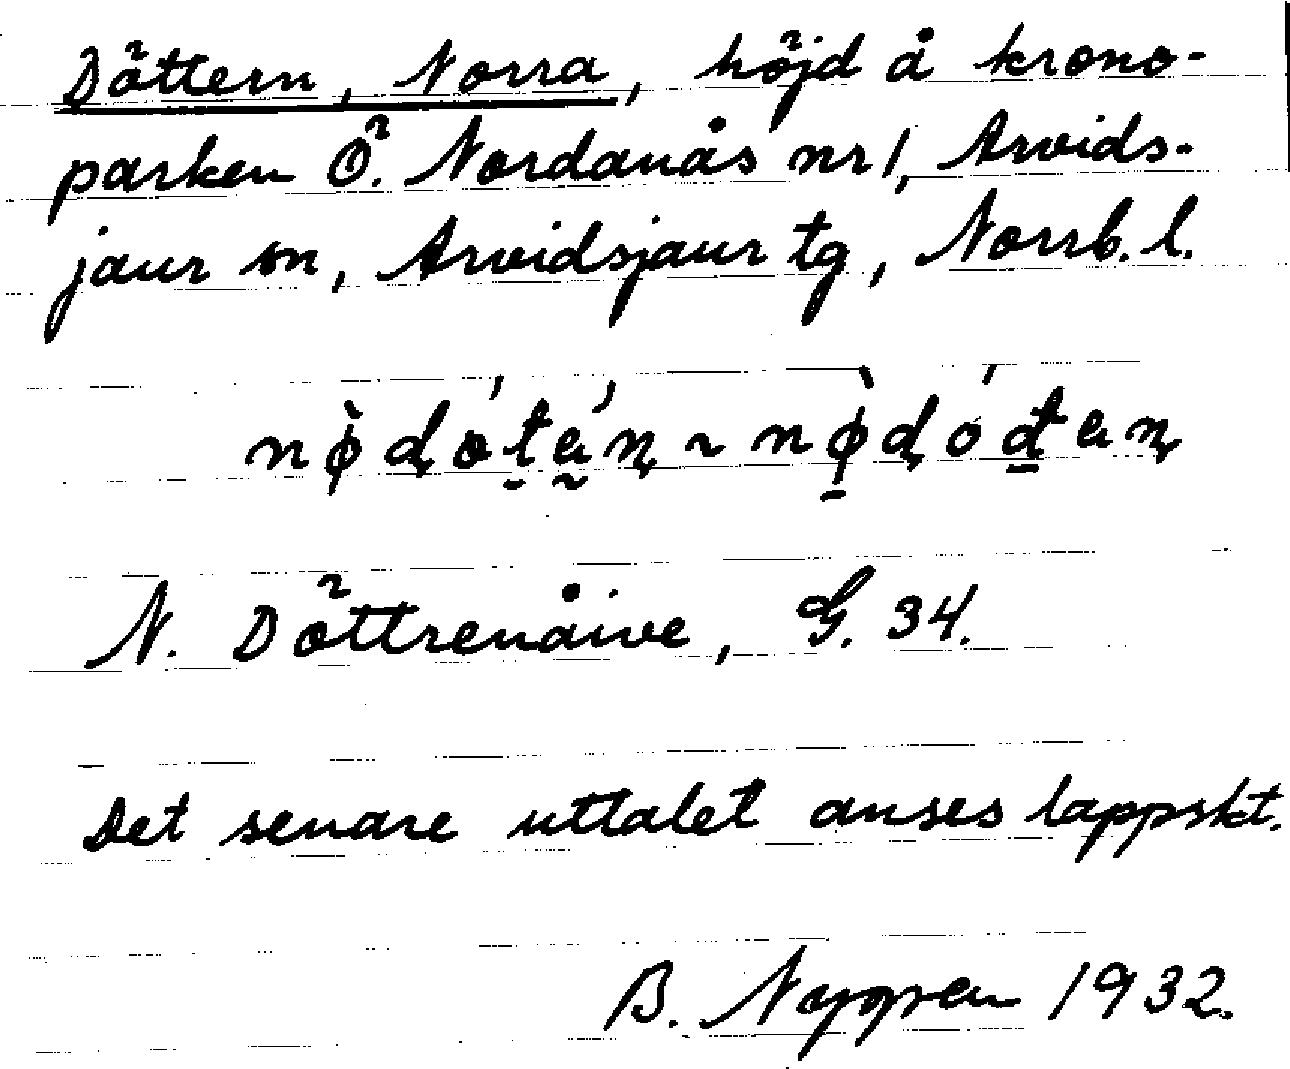 Döttern, Norra, höjd å krono-
parken Ö. Nordanås nr 1, Arvids-
jaur sn, Arvidsjaur tg, Norrb. l.
N. Döttrenåive, G. 34.
Det senare uttalet anses lappskt.
B. Nygren 1932.